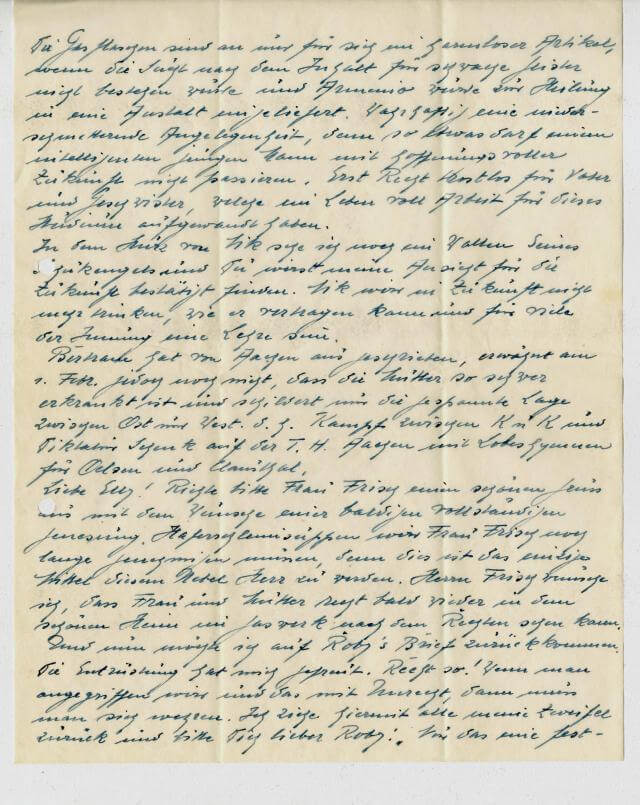 Die Gas Maschen sind an und für sich ein harmloser Artikel,
wenn die Sucht nach dem Inhalt für schwache Geister
nicht bestehen würde und Armenio würde zur Heilung
in eine Anstalt eingeliefert. Wahrhaftig eine nieder-
schmetternde Angelegenheit, denn so etwas darf einem
intelligenten jungen Mann mit hoffnungsvoller
Zukunft nicht passieren. Erst Recht trostlos für Vater
und Geschwister, welche ein Leben voll Arbeit für dieses
Studium aufgewandt haben.
In dem Sturz von Nik sehe ich noch ein Walten Seines
Schutzengels und Du wirst meine Ansicht für die
Zukunft bestätigt finden. Nik wird in Zukunft nicht
mehr trinken, wie er vertragen kann und für Viele
der Innung eine Lehre sein.
Bertram hat von Aachen aus geschrieben, erwähnt am
1. Febr. jedoch noch nicht, dass die Mutter so schwer
erkrankt ist und schildert nur die gespannte Lage
zwischen Ost und West. d. h. Kampf zwischen K u K und
Diktator Schenk auf der T. H. Aachen mit Lobeshymnen
für Orlsen und Clausthal.
Liebe Elly! Richte bitte Frau Frisch einen schönen Gruss
aus mit dem Wunsche einer baldigen vollständigen
Genesung. Haferschleimsuppen wird Frau Frisch noch
lange geniessen müssen, denn dies ist das einzige
Mittel diesem Übel Herr zu werden. Herrn Frisch wünsche
ich, dass Frau und Mutter recht bald wieder in dem
schönen Heim im Gaswerk nach dem Rechten sehen kann.
Und nun möchte ich auf Roby's Brief zurückkommen.
Die Entrüstung hat mich gefreut. Recht so! Wenn man
angegriffen wird und das mit Unrecht, dann muss
man sich wehren. Ich ziehe hiermit alle meine Zweifel
zurück und bitte Dich lieber Roby! Nur das eine fest-